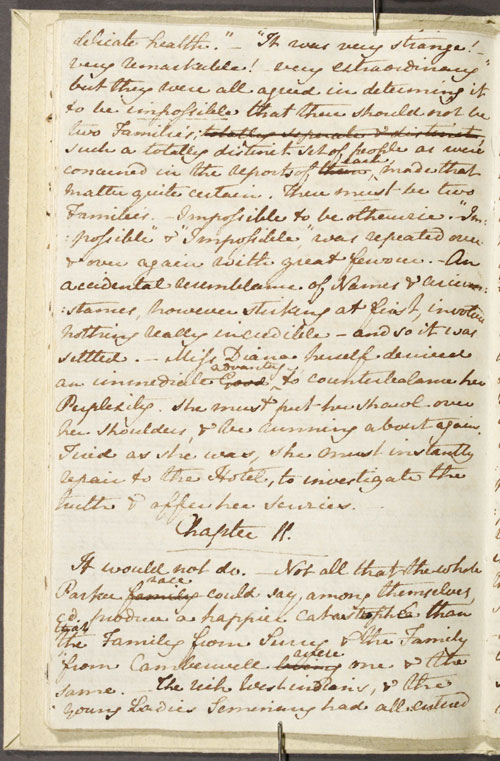 delicate health." – "It was very strange! –
very remarkable! – very extraordinary"
but they were all agreed in determining it
to be impossible that there should not be
two Families; totally separate & distinct
such a totally distinct set of people as were
concerned in the reports of them each, made that
matter quite certain. There must be two
Families. – Impossible to be otherwise. "Im-
:possible" & "Impossible" was repeated over
& over again with great fervour. – An
accidental resemblance of Names & circum-
:stances, however striking at first, involved
nothing really incredible – and so it was
settled. – Miss Diana herself derived
an immediate Good advantage to counterbalance her
Perplexity. She must put her shawl over
her shoulders, & be running about again.
Tired as she was, she must instantly
repair to the Hotel, to investigate the
truth & offer her services. –
Chapter 11.
It would not do. – Not all that the whole
Parker family race could say, among themselves,
cd. produce a happier catastrophe than
that the Family from Surry & the Family
from Camberwell being were one & the
same. – The rich Westindians, & the
young Ladies Seminary had all entered